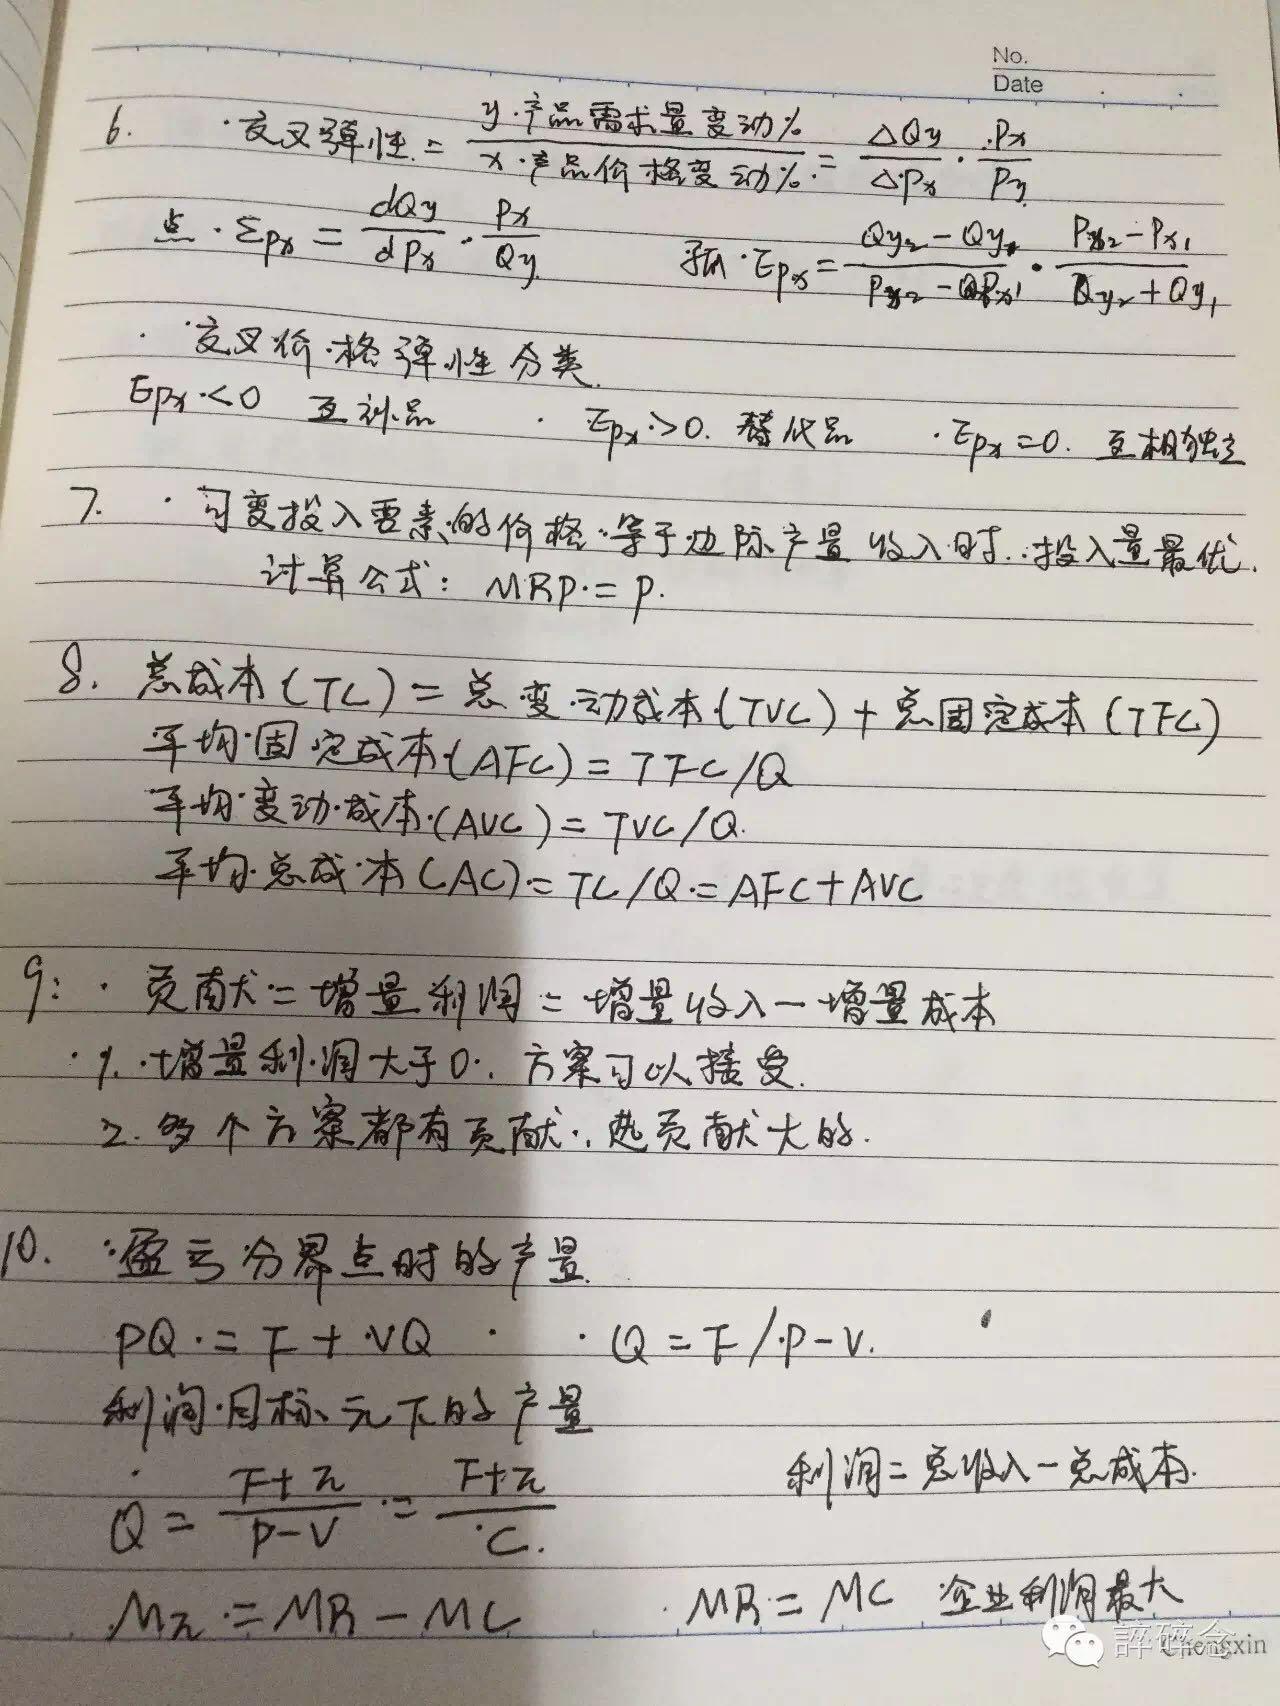 No.
Date
6. 交叉弹性 = y产品需求量变动% / x产品价格变动% = ΔQy/ΔPx · Px/Py
点 Epx = dQy/dPx · Px/Qy 弧 Epx = Qy₂-Qy₁/Px₂-Px₁ · Px₂-Px₁/Qy₂+Qy₁
交叉价格弹性分类.
Epx<0 互补品 Epx>0. 替代品 Epx=0. 互相独立
7. 可变投入要素的价格等于边际产量收入时.投入量最优.
计算公式: MRP = P.
8. 总成本(TC) = 总变动成本(TVC) + 总固定成本(TFC)
平均固定成本(AFC) = TFC/Q
平均变动成本(AVC) = TVC/Q.
平均总成本(AC) = TC/Q = AFC+AVC
9: 贡献 = 增量利润 = 增量收入-增量成本
1. 增量利润大于0. 方案可以接受.
2. 多个方案都有贡献. 选贡献大的.
10. 盈亏分界点时的产量.
PQ = F + VQ Q = F/P-V.
利润目标π下的产量
Q = F+π/P-V = F+π/C. 利润=总收入-总成本.
Mπ = MR - MC MR = MC 企业利润最大
Chengxin
誶碎念